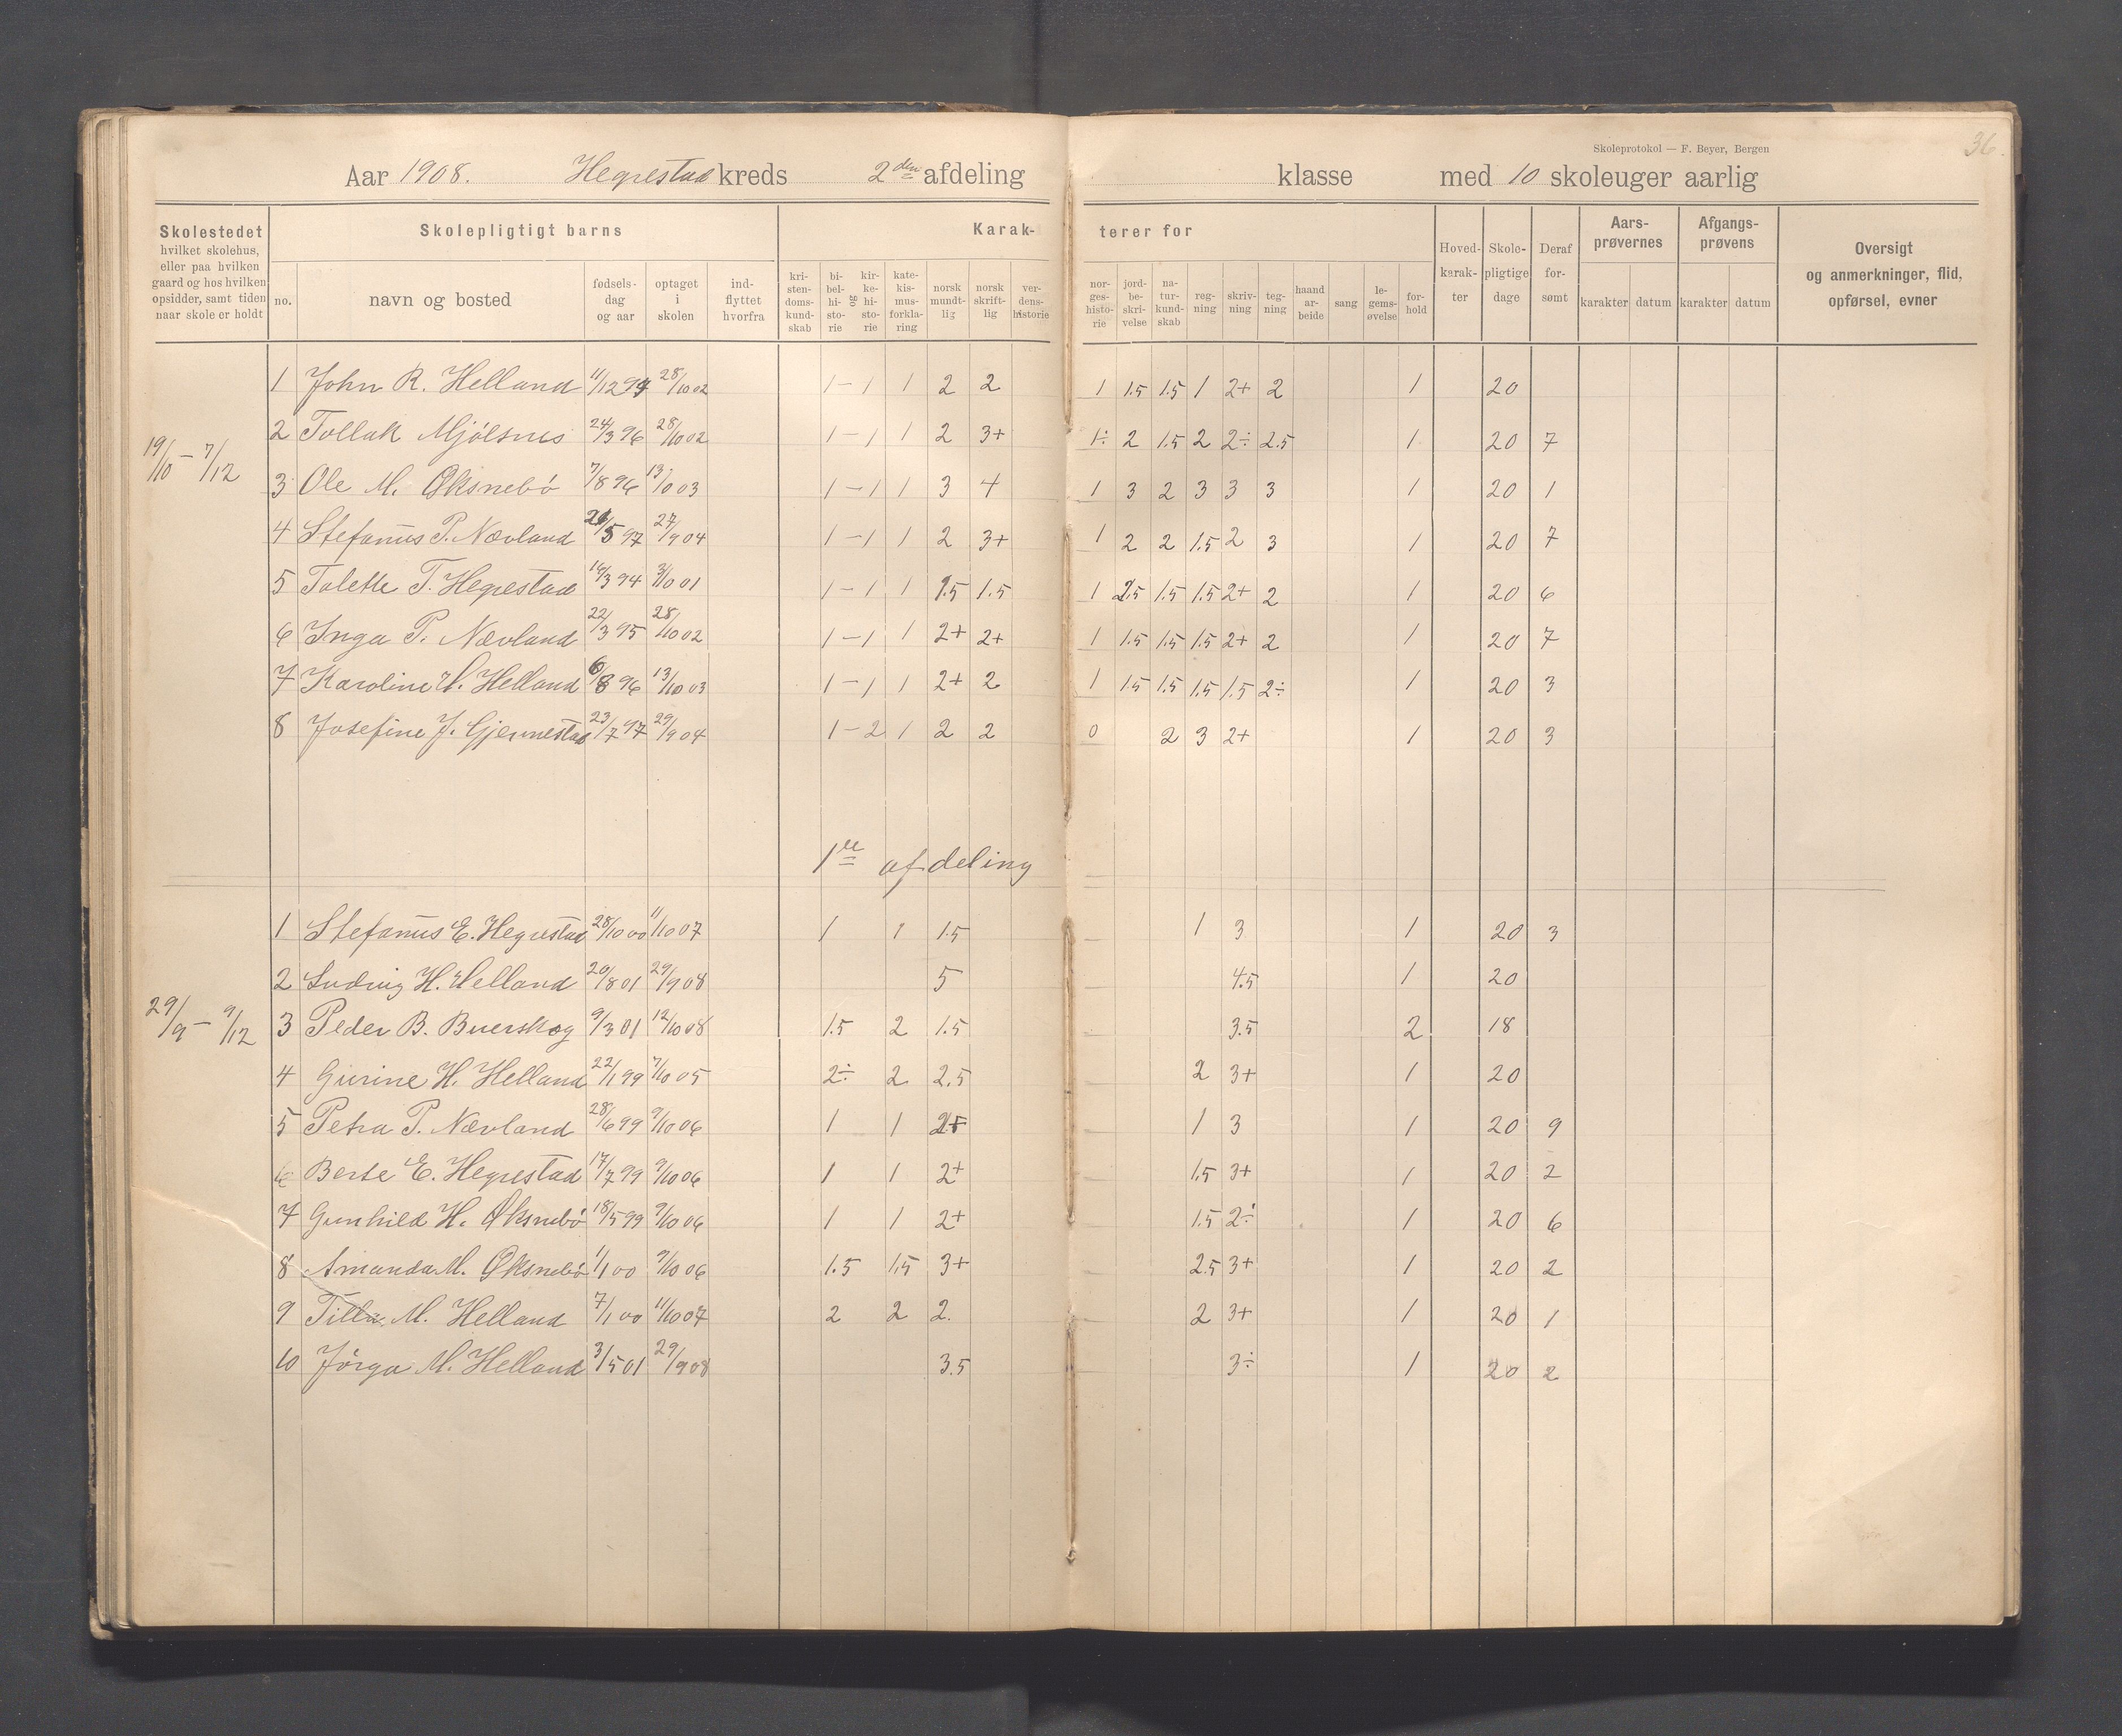 Skoleprotokol — F. Beyer, Bergen
36.
Aar 1908. Hegrestad kreds 2den afdeling klasse med 10 skoleuger aarlig
Skolestedet hvilket skolehus, eller paa hvilken gaard og hos hvilken opsidder, samt tiden naar skole er holdt
Skolepligtigt barns
no. navn og bosted fødsels-dag og aar optaget i skolen ind-flyttet hvorfra
Karak- terer for
kri-sten-doms-kund-skab bi-bel-hi-sto-rie og kir-ke-hi-sto-rie kate-kis-mus-forkla-ring norsk mundt-lig norsk skrift-lig ver-dens-historie nor-ges-histo-rie jord-be-skri-velse na-tur-kund-skab reg-ning skriv-ning teg-ning haand ar-beide sang le-gems-øvelse for-hold
Hoved-karak-ter Skole-pligtige dage Deraf for-sømt
Aars-prøvernes karakter datum
Afgangs-prøvens karakter datum
Oversigt og anmerkninger, flid, opførsel, evner
19/10 – 7/12
1 John R. Helland 11/12 94 28/10 02 1 – 1 1 2 2 1 1.5 1.5 1 2+ 2 1 20
2 Tollak Mjölsnes 24/3 96 28/10 02 1 – 1 1 2 3+ 1÷ 2 1.5 2 2÷ 2.5 1 20 7
3 Ole M. Øksnebö 7/8 96 13/10 03 1 – 1 1 3 4 1 3 2 3 3 3 1 20 1
4 Stefanus P. Nævland 5 97 27/9 04 1 – 1 1 2 3+ 1 2 2 1.5 2 3 1 20 7
5 Talette T. Hegrestad 19/3 94 3/10 01 1 – 1 1 1.5 1.5 1 1.5 1.5 1.5 2+ 2 1 20 6
6 Inga P. Nævland 22/3 95 28/10 02 1 – 1 1 2+ 2+ 1 1.5 1.5 1.5 2+ 2 1 20 7
7 Karoline H. Helland 6/8 96 13/10 03 1 – 1 1 2+ 2 1 1.5 1.5 1.5 1.5 2÷ 1 20 3
8 Josefine J. Gjermestad 23/7 97 29/9 04 1 – 2 1 2 2 0 2 3 2+ 1 20 3
1ste afdeling
29/9 – 9/12
1 Stefanus E. Hegrestad 28/10 00 11/10 07 1 1 1.5 1 3 1 20 3
2 Ludvig H. Helland 20/8 01 29/9 08 5 4.5 1 20
3 Peder B. Buerskog 9/3 01 12/10 08 1.5 2 1.5 3.5 2 18
4 Gurine H. Helland 22/1 99 7/10 05 2÷ 2 2.5 2 3+ 1 20
5 Petra P. Nævland 28/6 99 9/10 06 1 1 2+ 1 3 1 20 9
6 Berte E. Hegrestad 17/7 99 9/10 06 1 1 2+ 1.5 3+ 1 20 2
7 Gunhild H. Øksnebö 18/5 99 9/10 06 1 1 2+ 1.5 2÷ 1 20 6
8 Amanda M. Øksnebö 1/1 00 9/10 06 1.5 1.5 3+ 2.5 3+ 1 20 2
9 Tilla M. Helland 7/1 00 11/10 07 2 2 2. 2 3+ 1 20 1
10 Jörga M. Helland 3/5 01 29/9 08 3.5 3÷ 1 20 2